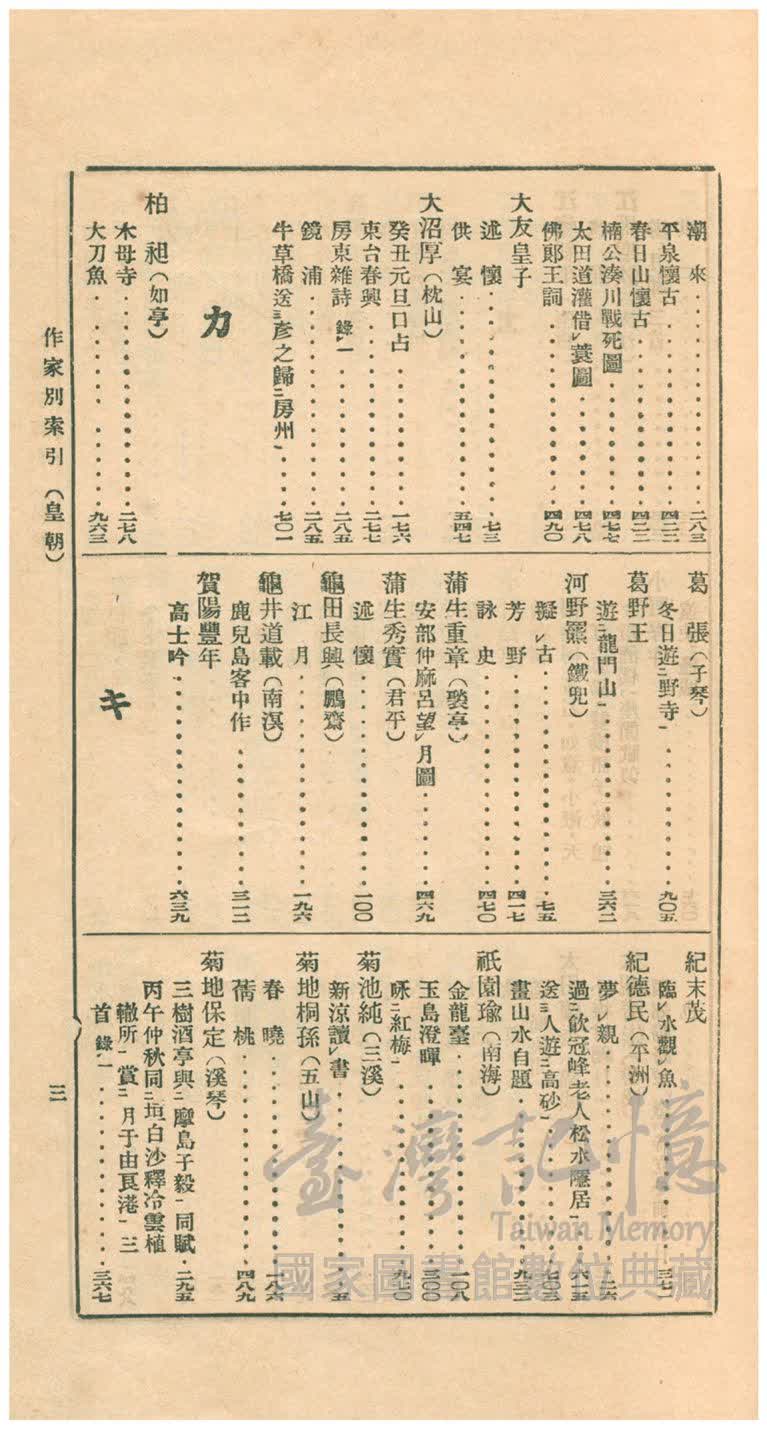 潮來・・・・・・・・・・二八三
平泉懷古・・・・・・・・・・四二二
春日山懷古・・・・・・・・・・四二二
楠公湊川戰死圖・・・・・・・・・・四七七
太田道灌借レ蓑圖・・・・・・・・・・四七八
佛郎王詞・・・・・・・・・・四九〇
大友皇子
述懷・・・・・・・・・・七三
供宴・・・・・・・・・・五四七
大沼厚(枕山)
癸丑元旦口占・・・・・・・・・・一七六
東台春興・・・・・・・・・・二七七
房東雜詩 錄レ一・・・・・・・・・・二八五
鏡浦・・・・・・・・・・二八五
牛草橋送三彥之歸二房州一・・・・・・・・・・七〇一
カ
柏昶(如亭)
木母寺・・・・・・・・・・二七八
大刀魚・・・・・・・・・・九六三
葛張(子琴)
冬日遊二野寺一・・・・・・・・・・九〇五
葛野王
遊二龍門山一・・・・・・・・・・三六二
河野羆(鐵兜)
擬レ古・・・・・・・・・・七五
芳野・・・・・・・・・・四一七
詠史・・・・・・・・・・四七〇
蒲生重章(褧亭)
安部仲麻呂望レ月圖・・・・・・・・・・四六九
蒲生秀實(君平)
述懷・・・・・・・・・・一〇〇
龜田長興(鵬齋)
江月・・・・・・・・・・一九六
龜井道載(南溟)
鹿兒島客中作・・・・・・・・・・三一二
賀陽豐年
高士吟・・・・・・・・・・六三九
キ
紀末茂
臨レ水觀レ魚・・・・・・・・・・三七一
紀德民(平洲)
夢レ親・・・・・・・・・・二六
過二飮冠峰老人松水隱居一・・・・・・・・・・六一五
送三人遊二高砂一・・・・・・・・・・七〇三
畫山水自題・・・・・・・・・・九三二
祇園瑜(南海)
金龍臺・・・・・・・・・・一〇八
玉島澄暉・・・・・・・・・・三〇〇
咏二紅梅一・・・・・・・・・・九七〇
菊池純(三溪)
新涼讀レ書・・・・・・・・・・五
菊地桐孫(五山)
春曉・・・・・・・・・・一八六
蒨桃・・・・・・・・・・四八九
菊地保定(溪琴)
三樹酒亭與二摩島子毅一同賦・二九五
丙午仲秋同二垣白沙釋冷雲植
轍所一賞二月于由良港一三
首 錄レ一・・・・・・・・・・三六七
作家別索引(皇朝)
三
臺灣記憶
Taiwan Memory
國家圖書館數位典藏